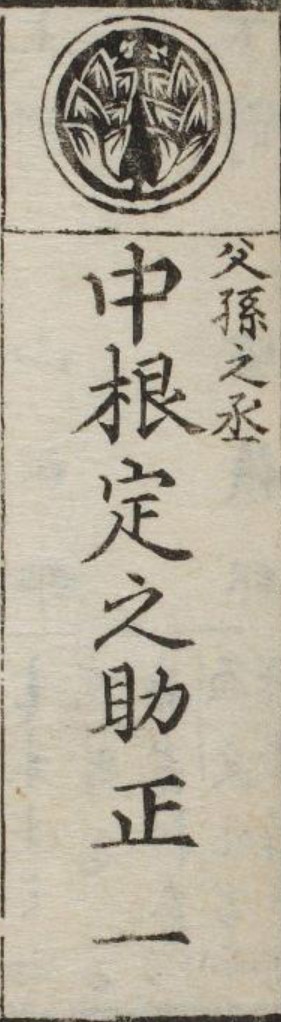 父孫之丞
中根定之助正一